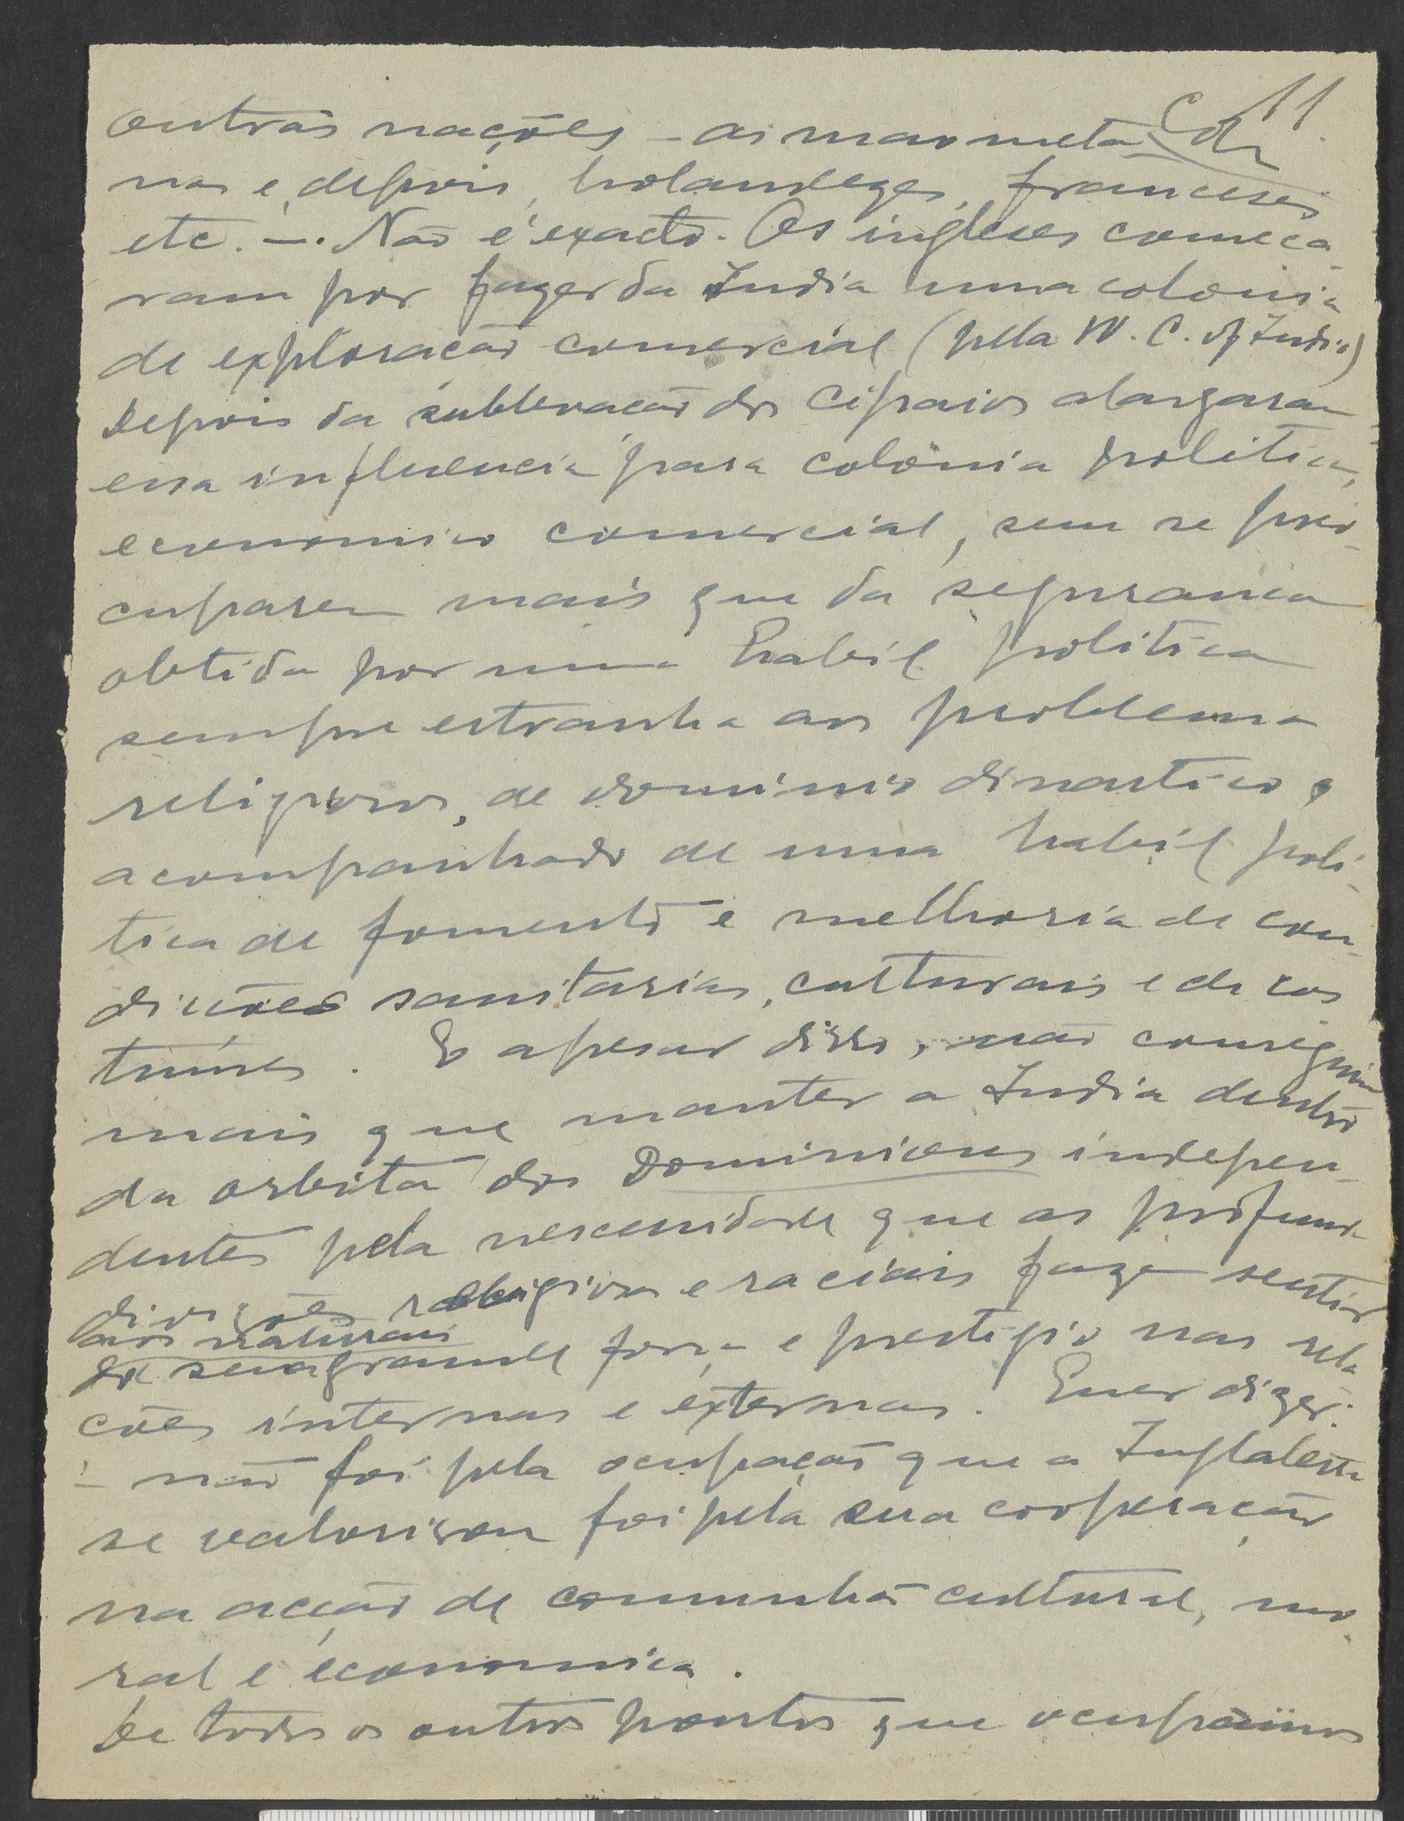 11
outras nações - as maometa
nas e, depois, holandezes, francesës
etc. -. Não é exacto. Os ingleses começa
ram por fazer da India uma colonia
de exploração comercial (pela W. C. of India)
Depois da sublevação dos Cipaios alargaram
essa influencia para colónia politica,
economico comercial, sem se preo-
cuparem mais que da segurança
obtida por uma habil politica
sempre estranha aos problema
religiosos, de dominio dinastico e
acompanhado de uma habil poli-
tica de fomento e melhoria de con-
dições sanitarias, culturais e de cos
tumes. E apesar disso, não conseguiu
mais que manter a India dentro
da orbita dos Dominions indepen-
dentes pela necessidade que as profundas
divisões religiosas e raciais faze sentir
aos naturais
da sua grande força e prestigio nas rela
ções internas e externas. Quer dizer:
- não foi pela ocupação que a Inglaterra
se valorisou foi pela sua cooperação
na acção de comunhão cultural, mo
ral e economica.
De todos os outros pontos que ocupámos